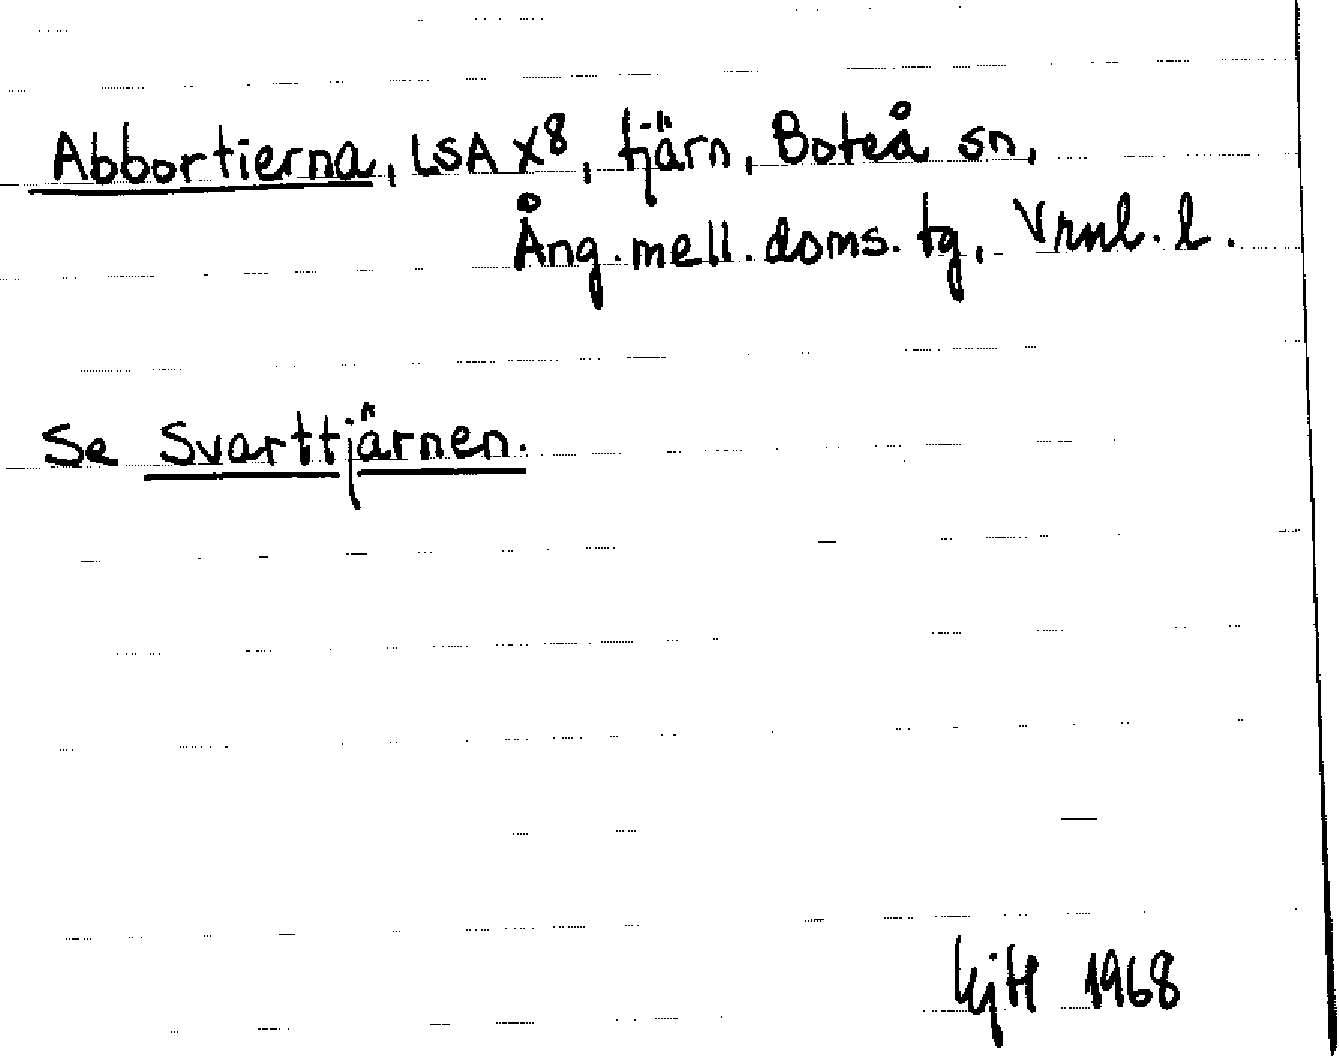 Abbortierna, LSA X8, tjärn, Boteå sn,
Ång. mell. doms. tg, Vrnl. l.
Se Svarttjärnen.
KjH 1968